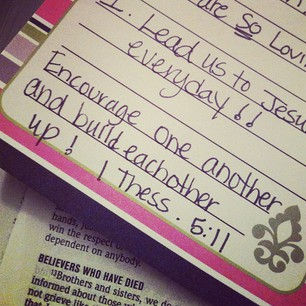 are So Lovin
1. Lead us to Jesu
everyday!!
Encourage one another
and build eachother
up! 1 Thess. 5:11
hands, just
win the respect of
dependent on anybody.
BELIEVERS WHO HAVE DIED
"Brothers and sisters, we do
informed about those wh
not grieve like